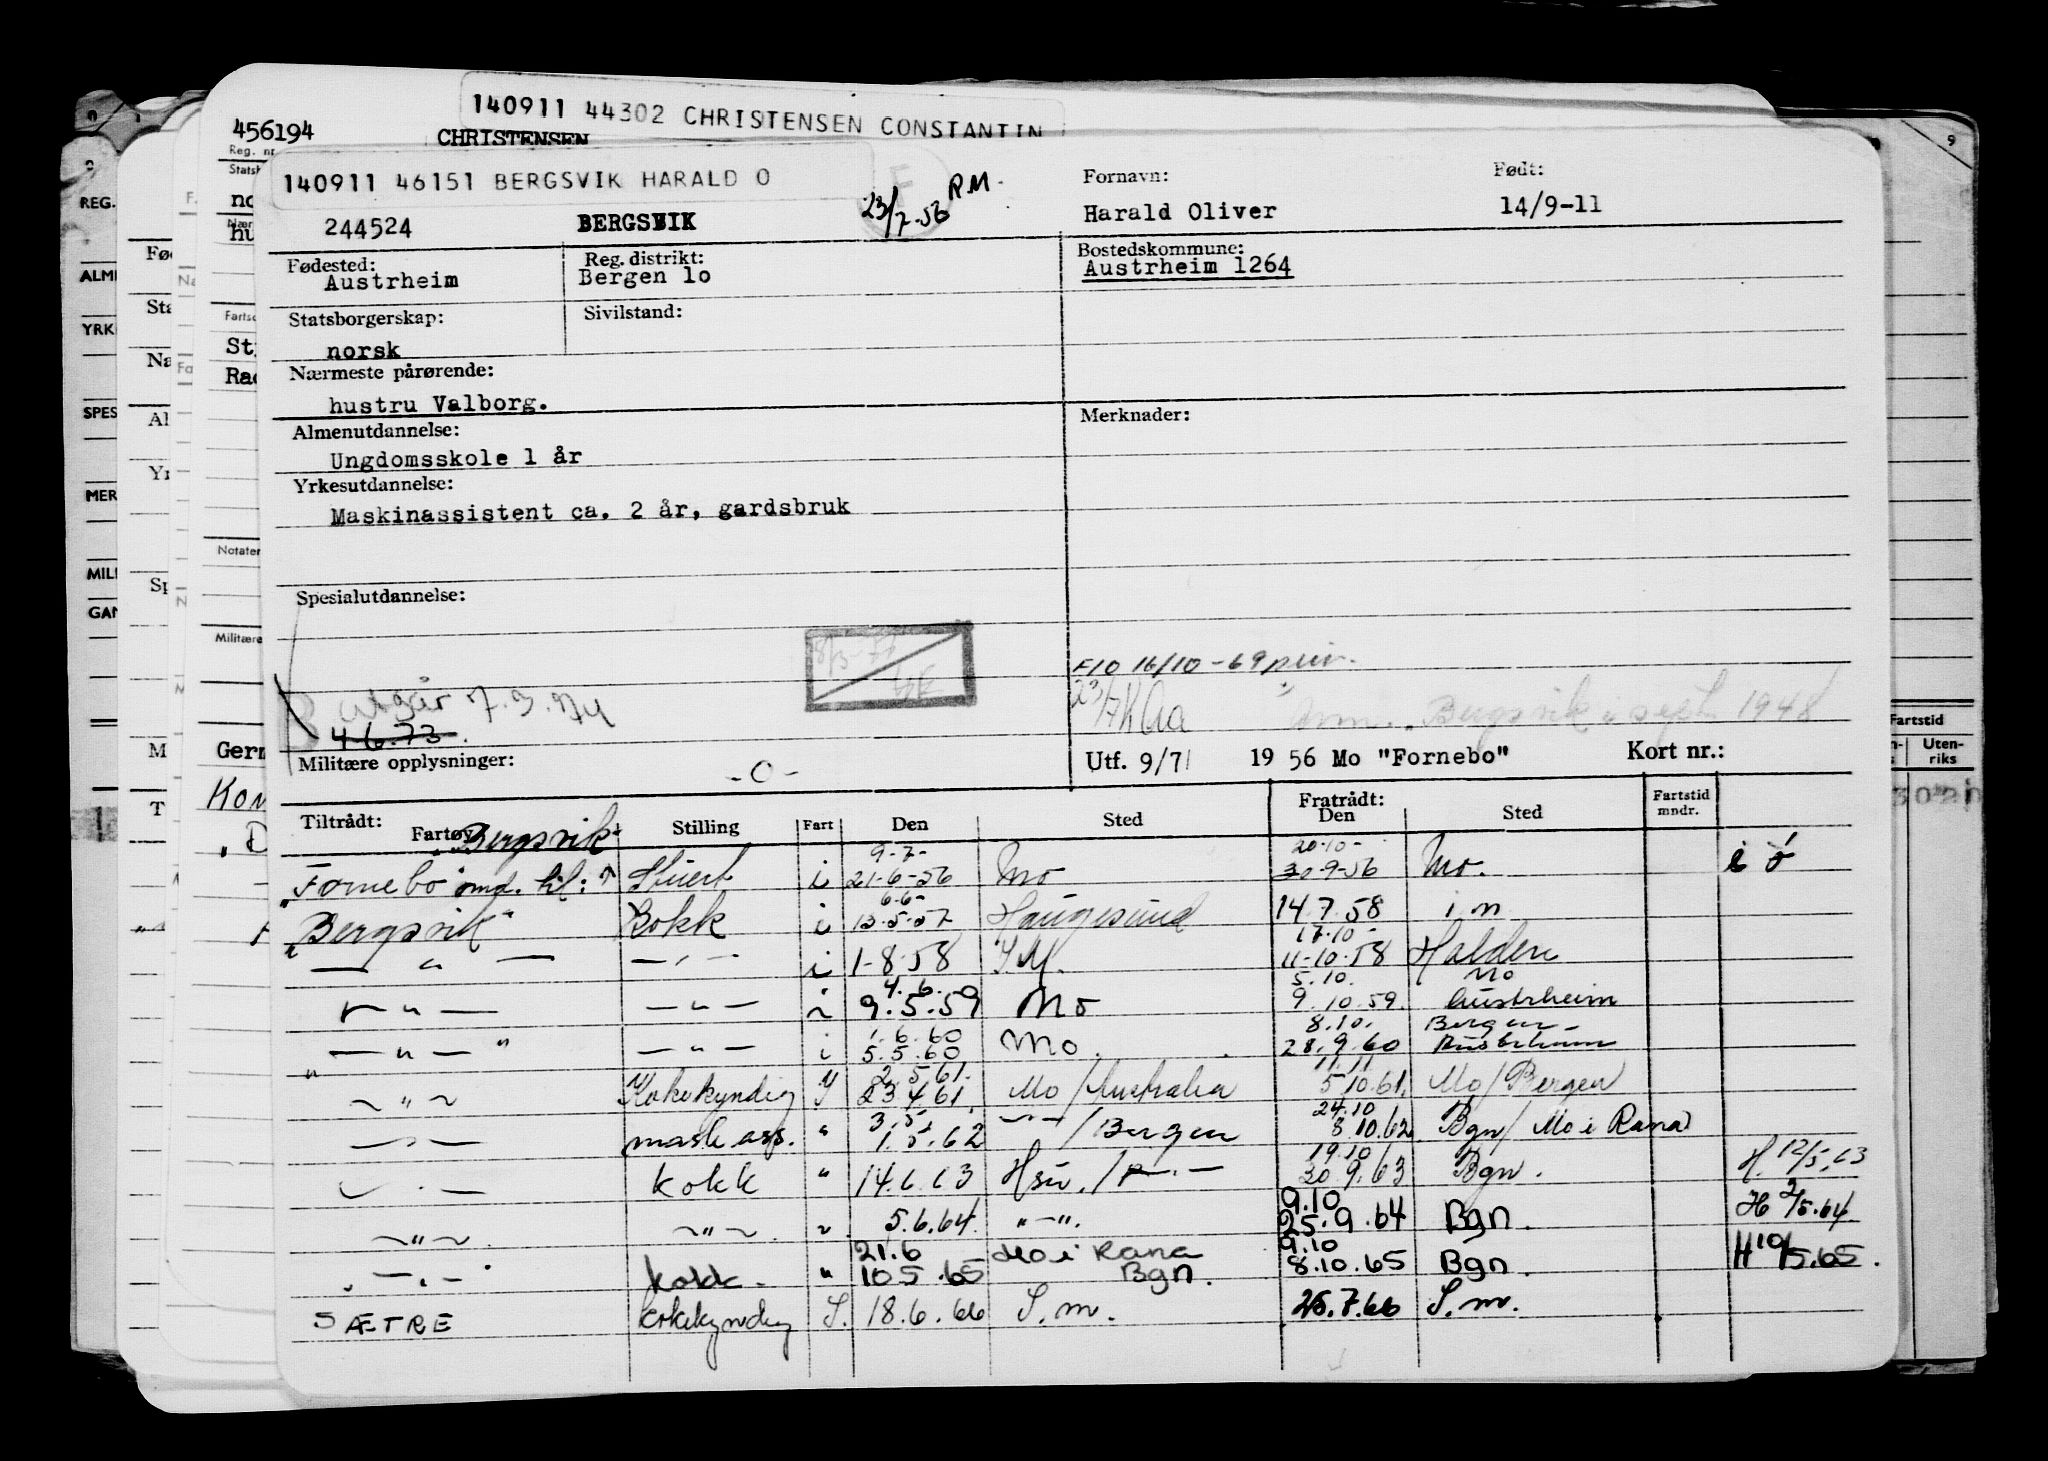 140911 44302 CHRISTENSEN CONSTANTIN
456194 CHRISTENSEN
Reg. nr
140911 46151 BERGSVIK HARALD O
23/7-56 R.M.
Fornavn: Født:
244524 BERGSVIK Harald Oliver 14/9-11
Fødested: Reg. distrikt: Bostedskommune:
Austrheim Bergen 1o Austrheim 1264
Statsborgerskap: Sivilstand:
norsk
Nærmeste pårørende:
hustru Valborg.
Merknader:
Almenutdannelse:
Ungdomsskole 1 år
Yrkesutdannelse:
Maskinassistent ca. 2 år, gardsbruk
Spesialutdannelse:
F10 16/10-69
utgår 7.3.74
Bergsvik i sept 1948
4.6.73.
Militære opplysninger: -0-
Utf. 9/7 1956 Mo "Fornebo" Kort nr.:
Tiltrådt: Fratrådt: Fartstid mndr.
Fartøy Stilling Fart Den Sted Den Sted
Bergsvik 9-7- 20-10-
"Fornebo" omd. til: Stuert i 21-6-56 Mo 30-9-56 Mo. i ø
6.6-
"Bergsvik" Kokk i 13-5-57 Haugesund 14.7.58 i n
17-10-
— " — — " — i 1-8-58 I M. 11-10-58 Halden
4.6. 5.10. Mo
— " — — " — i 9.5.59 Mo 9.10.59. Austrheim
1.6.60 8.10. Bergen
— " — — " — i 5.5.60 Mo. 28.9.60 Austrheim
2.5.61. 11.11
— " — Kokekyndig 23.4.61. Mo/Australia 5.10.61. Mo/Bergen
3.5. 24.10
— " — mask ass. " 1.5.62 — " — /Bergen 8.10.62 Bgn/ Mo i Rana
19.10
— " — kokk " 14.6.63 30.9.63 Bgn. H. 12/5.63
9.10
— " — — " — " 5.6.64. " — ". 25.9.64 Bgn. H 2/5.64
21.6 Mo i Rana 9.10
— " — kokk - " 10.5.65 Bgn. 8.10.65 Bgn. H 10/5.65.
SÆTRE kokekyndig S. 18.6.66 S.m. 26.7.66 S.m.
REG.
ALM
YRK
SPES
MER
MIL
Notater
Militære
Fartstid
Uten-
riks